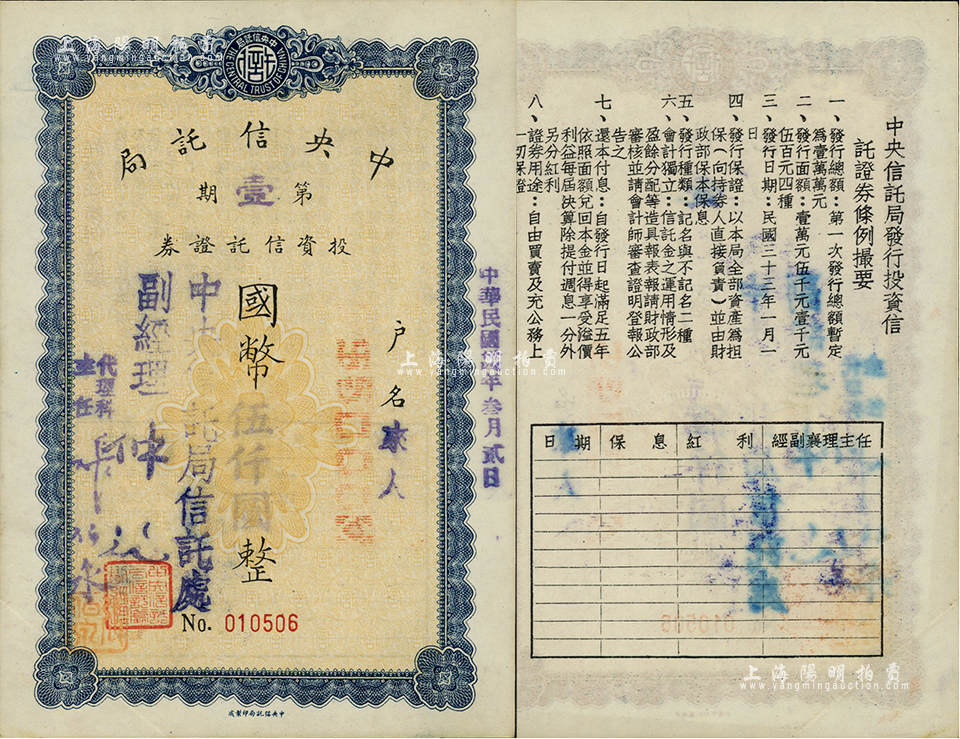 上海陽明拍賣
www.yangmingauction.com
中央信託局
THE CENTRAL TRUST OF CHINA
中央信託局
第壹期
投資信託證券
戶名來人
國幣伍仟圓整
中華民國 年叁月貳日
中央信託局信託處
副經理
代理科
主任
No. 010506
中央信託局印製成
上海陽明拍賣
www.yangmingauction.com
中央信託局發行投資信
託證券條例撮要
一、發行總額：第一次發行總額暫定
為壹萬萬元
二、發行面額：壹萬元伍千元壹千元
伍百元四種
三、發行日期：民國三十三年一月一
日
四、發行保證：以本局全部資產為担
保（向持券人直接負責）並由財
政部保本保息
五、發行種類：記名與不記名二種
六、會計獨立：信託金之運用情形及
盈餘分配等造具報表報請財政部
審核並請會計師審查證明登報公
告之
七、還本付息：自發行日起滿足五年
依照面額兌回本金並得享受溢價
利益每届決算除提付週息一分外
另分紅利
八、證券用途：自由買賣及充公務上
一切保證
日期 保息 紅利 經副襄理主任
010506
上海陽明拍賣
www.yangmingauction.com